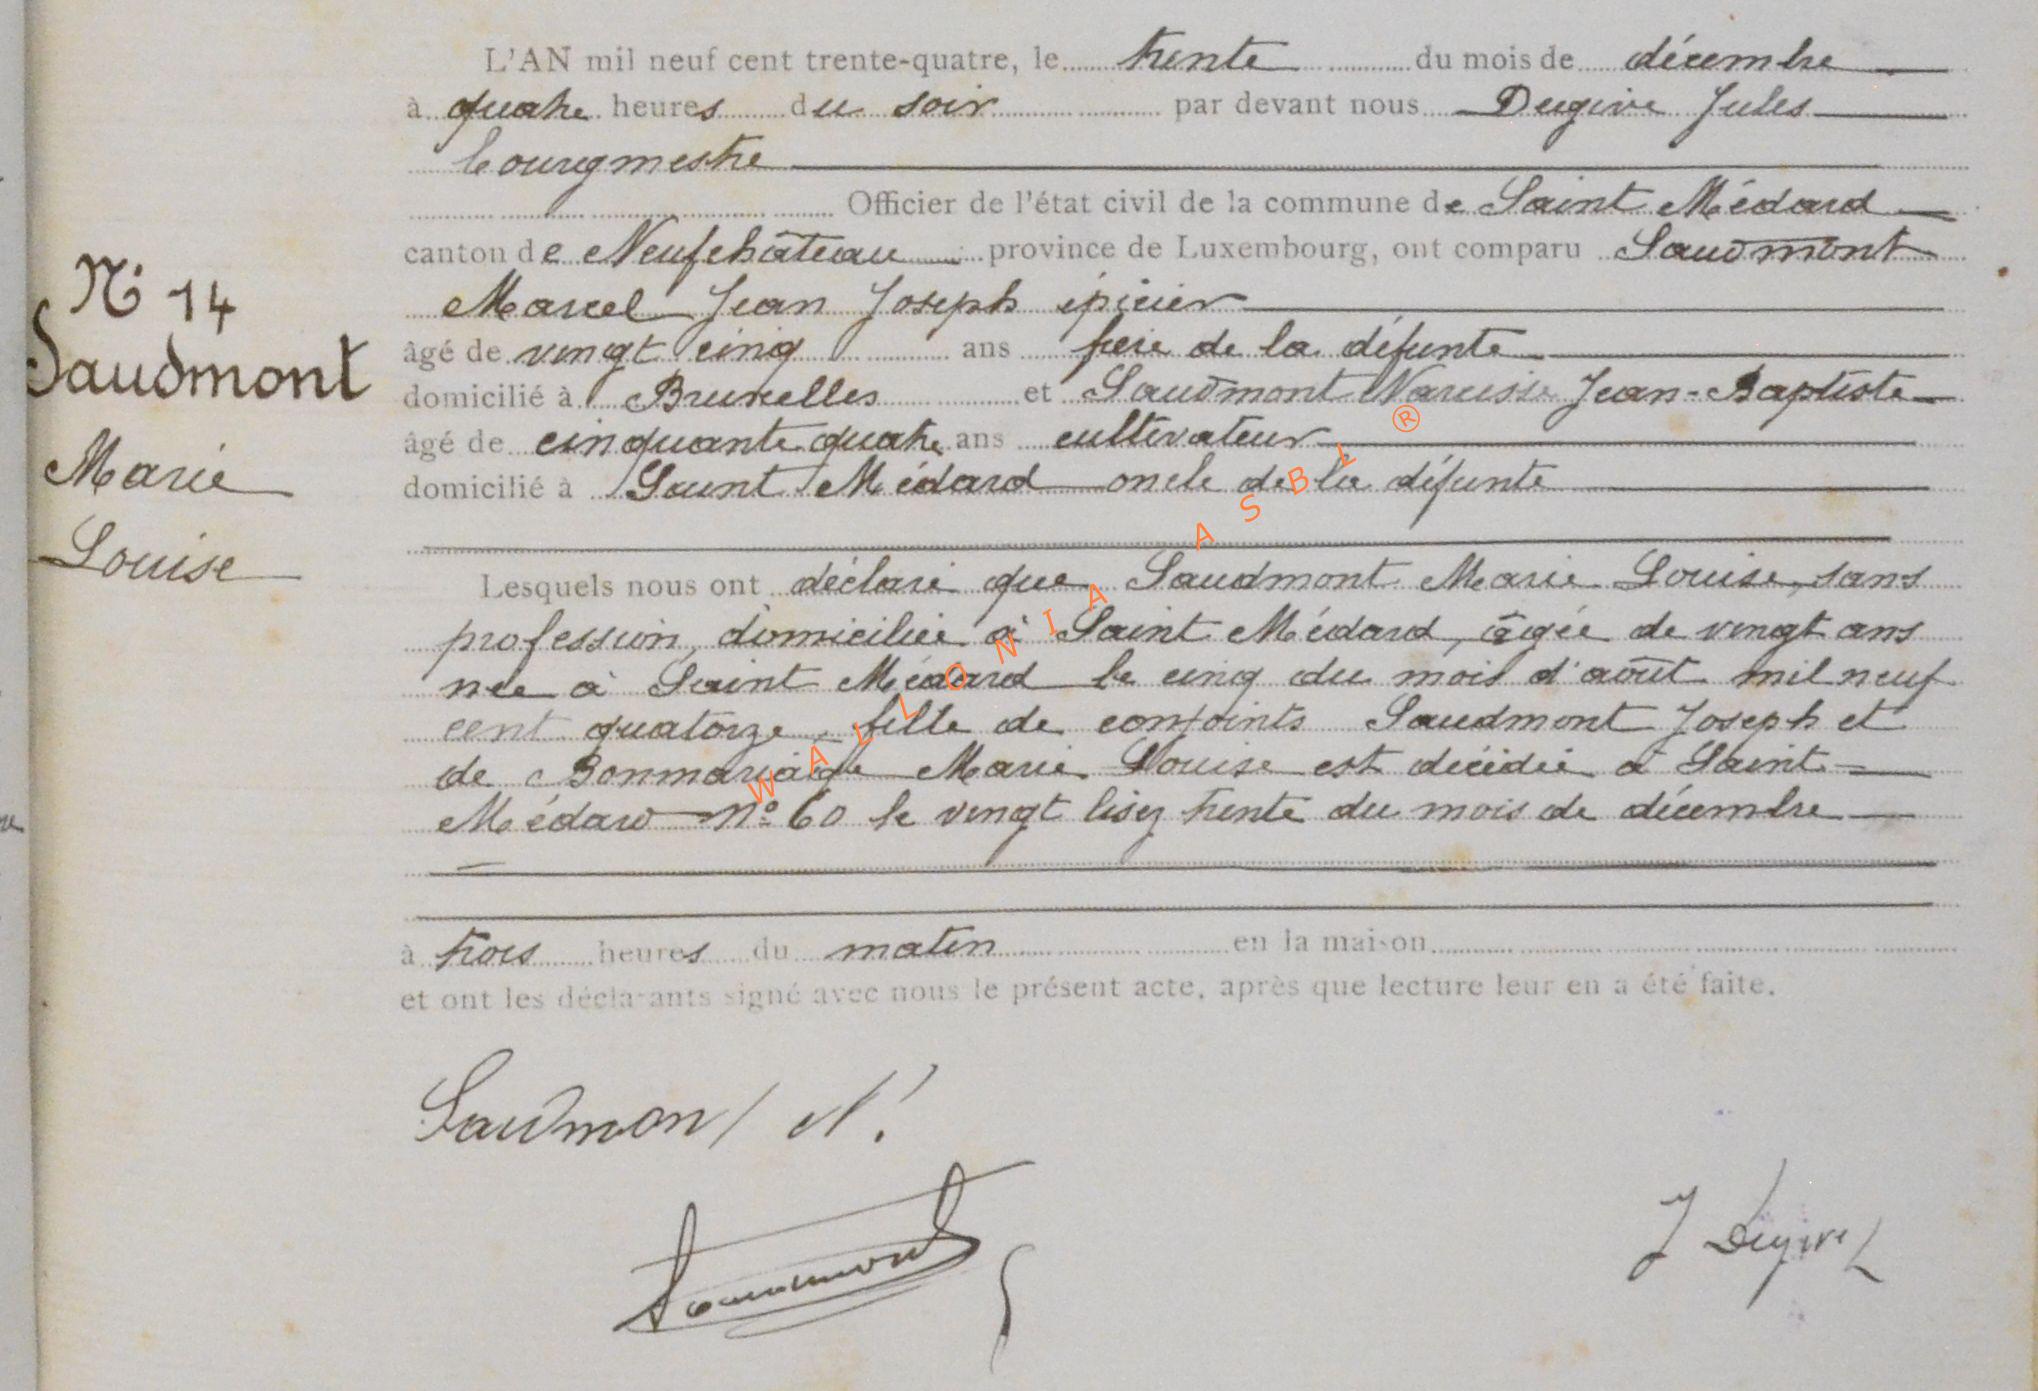 L'AN mil neuf cent trente-quatre, le trente du mois de décembre
à quatre heures du soir par devant nous Dugive Jules
bourgmestre
Officier de l'état civil de la commune de Saint Médard
canton de Neufchâteau province de Luxembourg, ont comparu Saudmont
Marcel Jean Joseph épicier
âgé de vingt cinq ans frère de la défunte
domicilié à Bruxelles et Saudmont Narcisse Jean-Baptiste
âgé de cinquante quatre ans cultivateur
domicilié à Saint Médard oncle de la défunte
N° 14
Saudmont
Marie
Louise
Lesquels nous ont déclaré que Saudmont Marie Louise, sans
profession, domiciliée à Saint Médard, âgée de vingt ans
née à Saint Médard le cinq du mois d'août mil neuf
cent quatorze, fille de conjoints Saudmont Joseph et
de Bonmariage Marie Louise est décédée à Saint-
Médard N° 60 le vingt lisez trente du mois de décembre
à trois heures du matin en la maison
et ont les déclarants signé avec nous le présent acte, après que lecture leur en a été faite.
Saudmont N.
Saudmont
J Dugive
WALLONIA ASBL ®